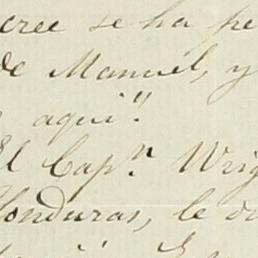 cree se ha pe
de Manuel, y
aqui".
El Cap.n Wrig
Honduras, le di